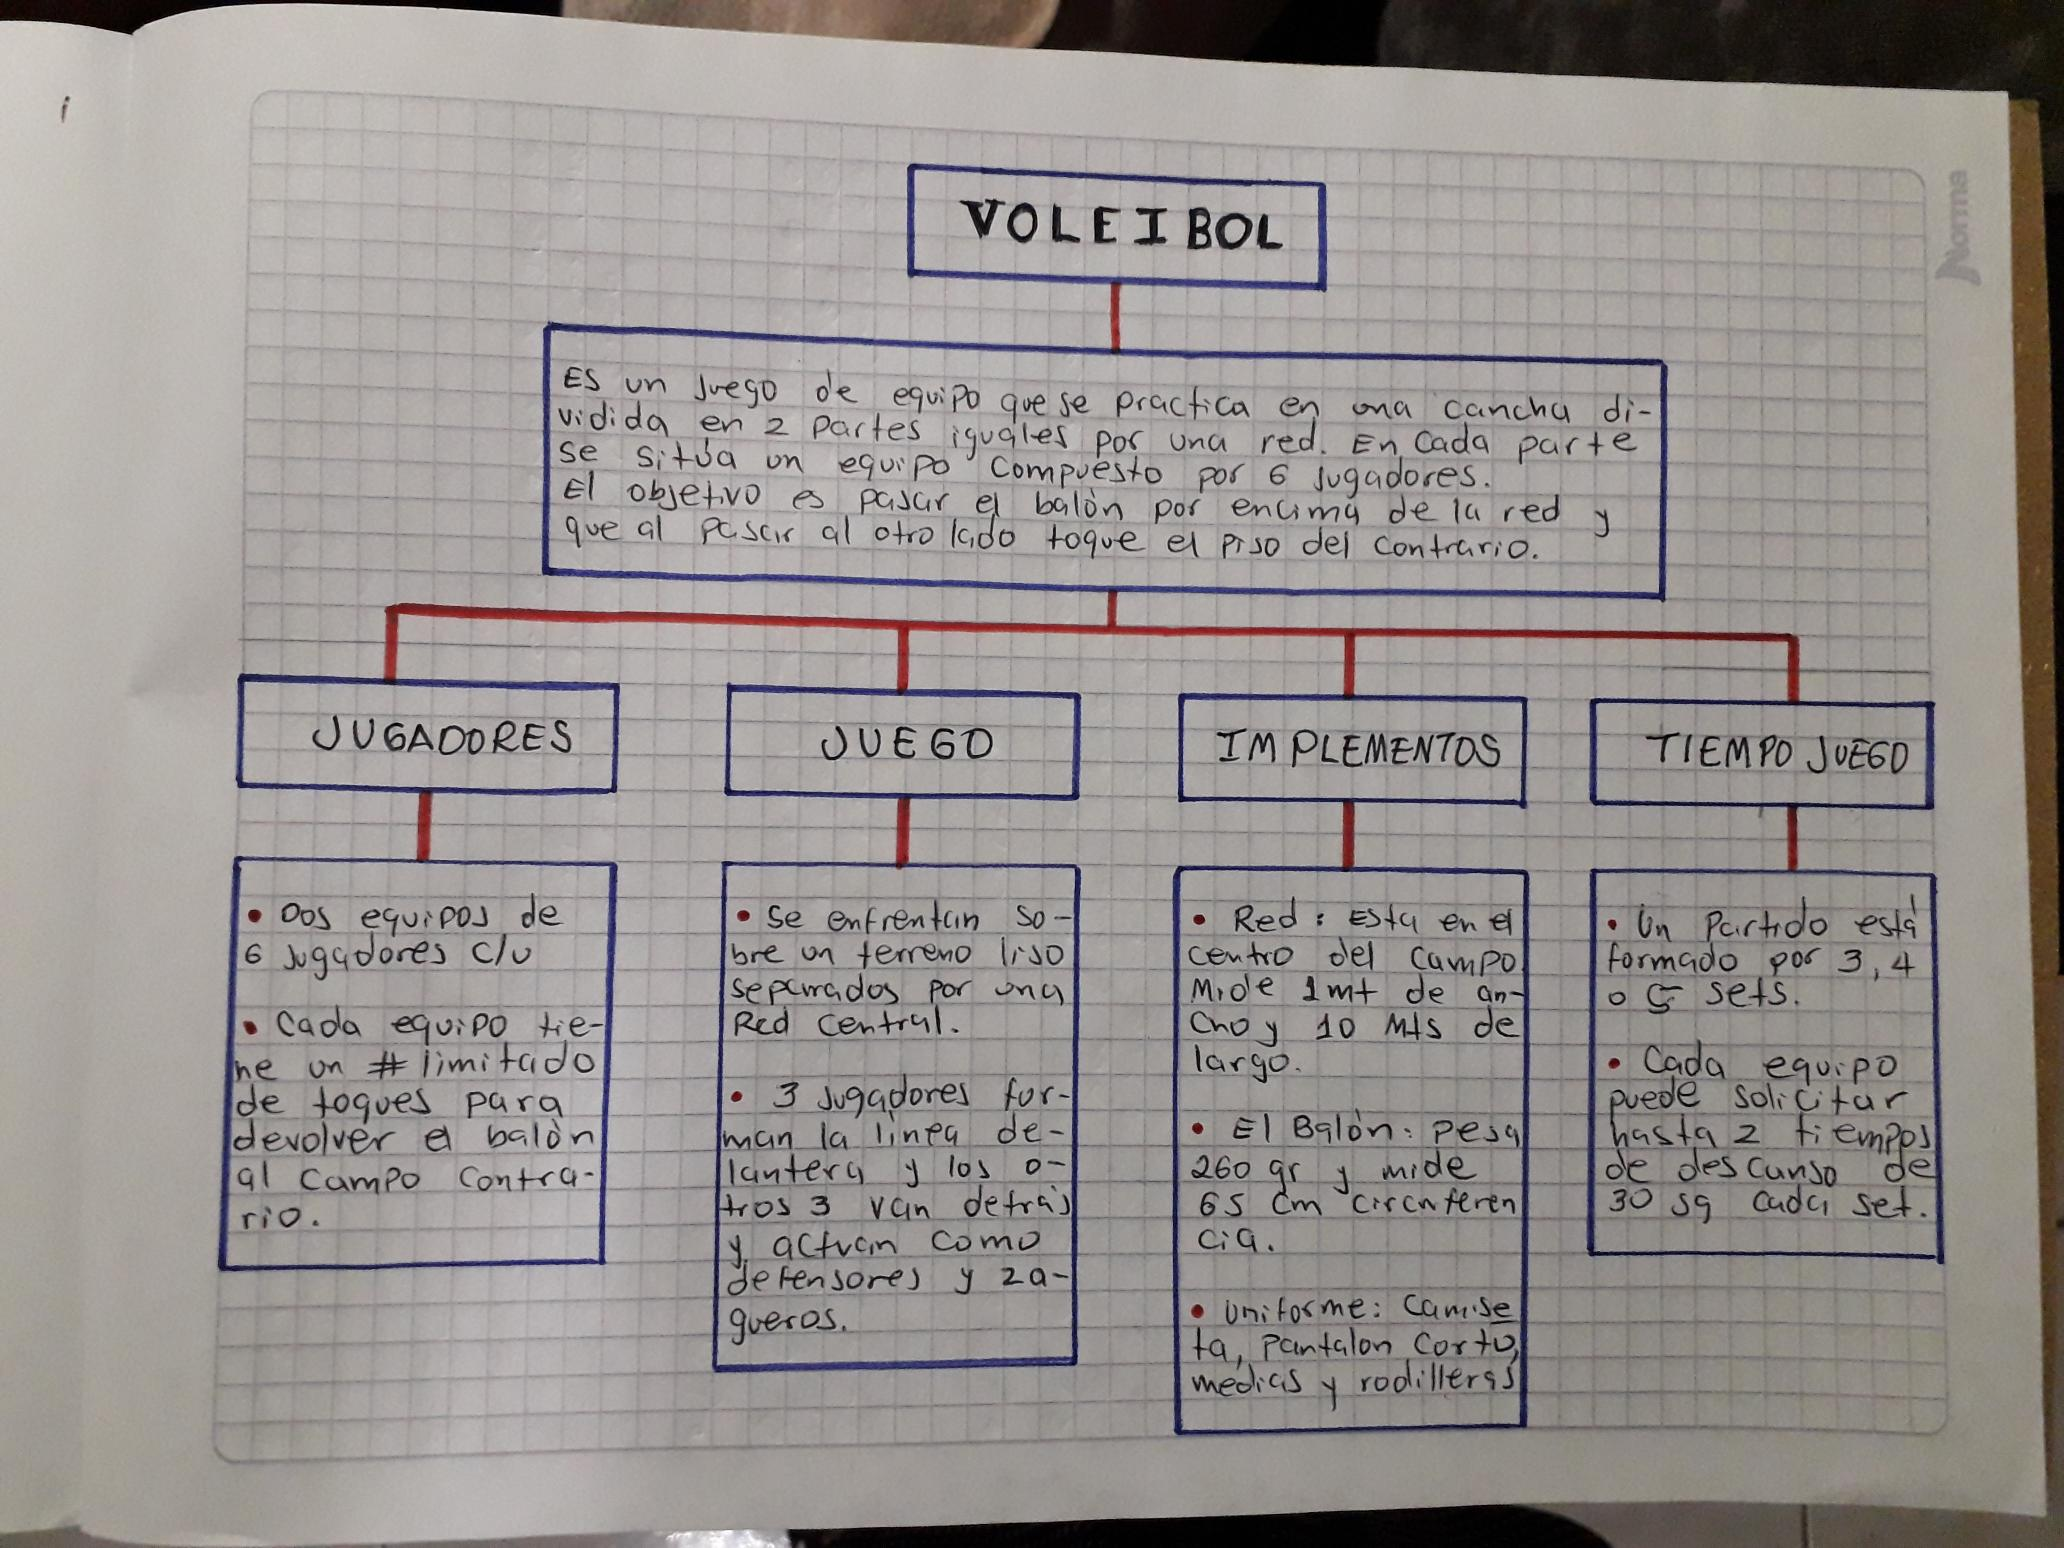 VOLEIBOL
Es un Juego de equipo que se practica en una cancha di-
vidida en 2 partes iguales por una red. En cada parte
se sitúa un equipo compuesto por 6 Jugadores.
El objetivo es pasar el balón por encima de la red y
que al pasar al otro lado toque el piso del contrario.
JUGADORES
• Dos equipos de
6 Jugadores c/u
• Cada equipo tie-
ne un # limitado
de toques para
devolver el balón
al campo contra-
rio.
JUEGO
• Se enfrentan so-
bre un terreno liso
separados por una
Red Central.
• 3 Jugadores for-
man la línea de-
lantera y los o-
tros 3 van detrás
y actuan como
defensores y za-
gueros.
IMPLEMENTOS
• Red: Esta en el
centro del campo
Mide 1mt de an-
cho y 10 Mts de
largo.
• El Balón: pesa
260 gr y mide
65 cm circunferen
cia.
• Uniforme: Camise
ta, pantalon corto,
medias y rodilleras
TIEMPO JUEGO
• Un Partido está
formado por 3, 4
o 5 sets.
• Cada equipo
puede solicitar
hasta 2 tiempos
de descanso de
30 sg cada set.
Norma
i